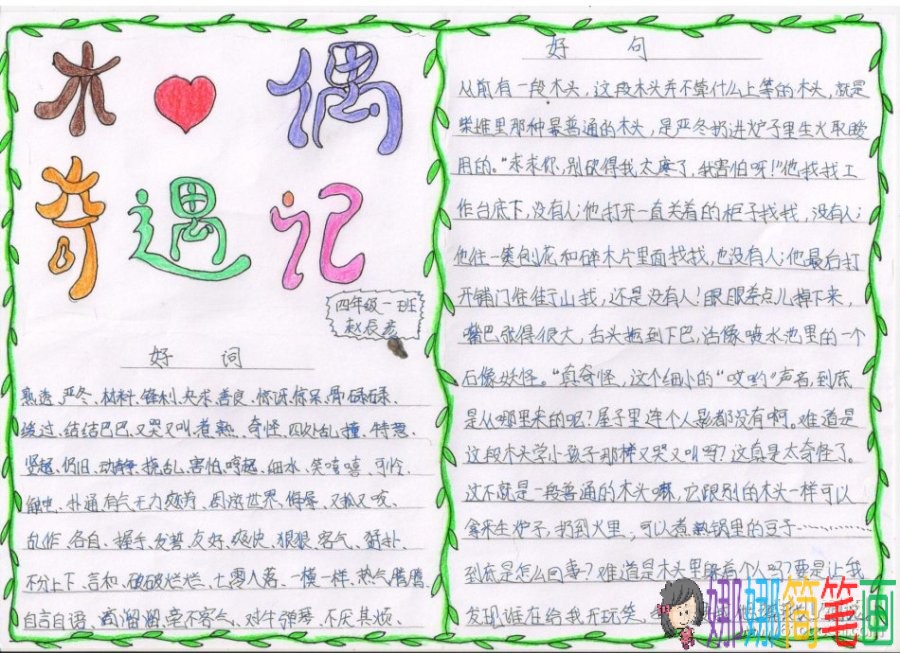 木偶
奇遇记
四年级一班
赵辰彦
好词
熟透、严冬、材料、锋利、央求、善良、惊讶、惊呆、骨碌碌、
缓过、结结巴巴、又哭又叫、煮熟、奇怪、四处乱撞、特意、
竖起、仍旧、动静、捣乱、害怕、哼起、细水、笑嘻嘻、可怜、
扑通、有气无力、周游世界、侮辱、又抓又咬、
乱作、各自、握手、发誓、友好、爽快、狠狠、客气、
不分上下、言和、破破烂烂、七零八落、一模一样、热气腾腾、
自言自语、毫不客气、对牛弹琴、不厌其烦、
好句
从前有一段木头，这段木头并不算什么上等的木头，就是
柴堆里那种最普通的木头，是严冬扔进炉子里生火取暖
用的。“求求你，别砍得我太疼了，我害怕呀！”他找找工
作台底下，没有人；他打开一直关着的柜子找找，没有人；
他往一篓刨花和碎木片里面找找，也没有人；他最后打
开铺门往街上找，还是没有人！眼眼差点儿掉下来，
嘴巴张得很大，舌头拖到下巴，活像喷水池里的一个
石像妖怪。“真奇怪，这个细小的“哎哟”声音，到底
是从哪里来的呢？屋子里连个人影都没有啊。难道是
这段木头学小孩子那样又哭又叫吗？这真是太奇怪了。
这不就是一段普通的木头嘛，它跟别的木头一样可以
拿来生炉子，扔到火里，可以煮熟锅里的豆子…………
到底是怎么回事？难道是木头里躲着个人吗？要是让我
发现谁在给我开玩笑，
娜娜简笔画